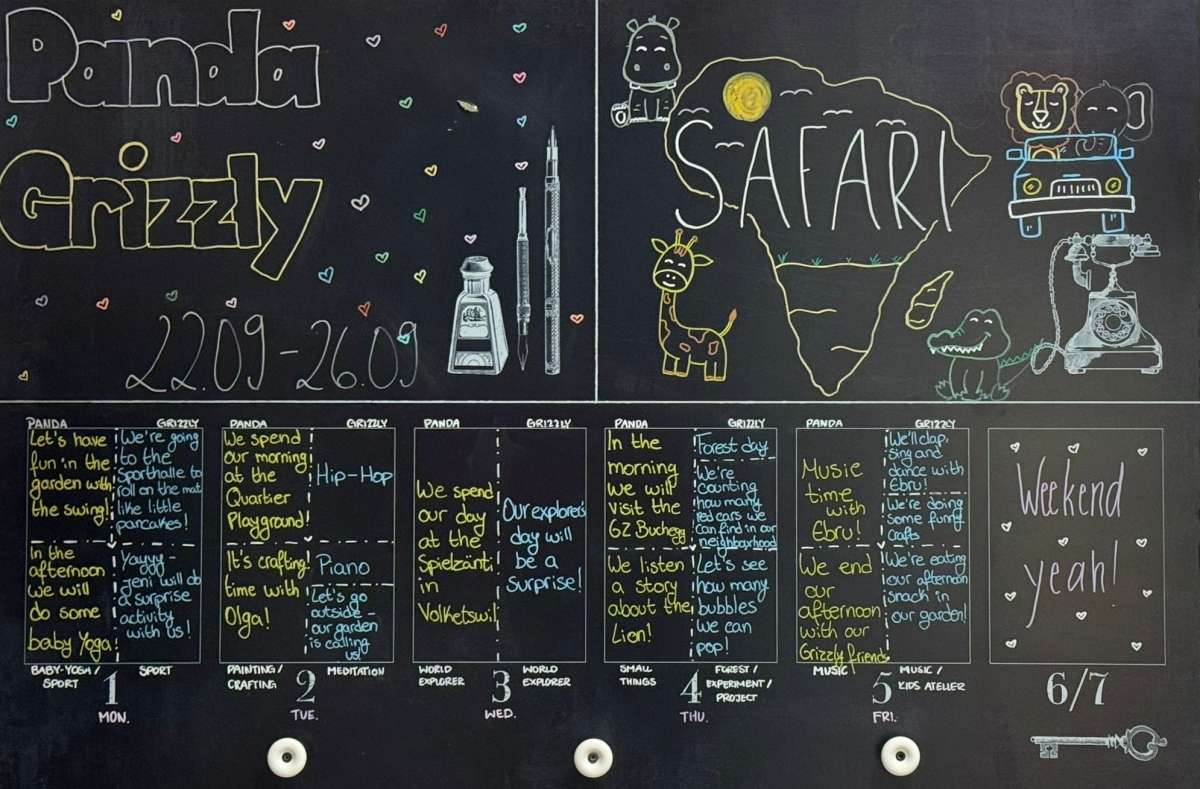 Panda
Grizzly
22.09 - 26.09
SAFARI
PANDA
GRIZZLY
Let's have
fun in the
garden with
the swing!
We're going
to the
Sporthalle to
roll on the mat
like little
pancakes!
In the
afternoon
we will
do some
baby Yoga!
Yayyy -
Jeni will do
a surprise
activity
with us!
BABY-YOGA /
SPORT
SPORT
1
MON.
PANDA
GRIZZLY
We spend
our morning
at the
Quartier
Playground!
Hip-Hop
It's crafting
time with
Olga!
Piano
Let's go
outside -
our garden
is calling
us!
PAINTING /
CRAFTING
MEDITATION
2
TUE.
PANDA
GRIZZLY
We spend
our day
at the
Spielzänti
in
Volketswil
Our explorers
day will
be a
surprise!
WORLD
EXPLORER
WORLD
EXPLORER
3
WED.
PANDA
GRIZZLY
In the
morning
we will
visit the
GZ Buchegg
Forest day
We're
counting
how many
red cars we
can find in our
neighbourhood
We listen
a story
about the
Lion!
Let's see
how many
bubbles
we can
pop!
SMALL
THINGS
FOREST /
EXPERIMENT /
PROJECT
4
THU.
PANDA
GRIZZLY
Music
time
with
Ebru!
We'll clap,
sing and
dance with
Ebru!
We're doing
some funny
crafts
We end
our
afternoon
with our
Grizzly friends
We're eating
our afternoon
snack in
our garden!
MUSIC /
MUSIC /
KIDS ATELIER
5
FRI.
Weekend
yeah!
6/7